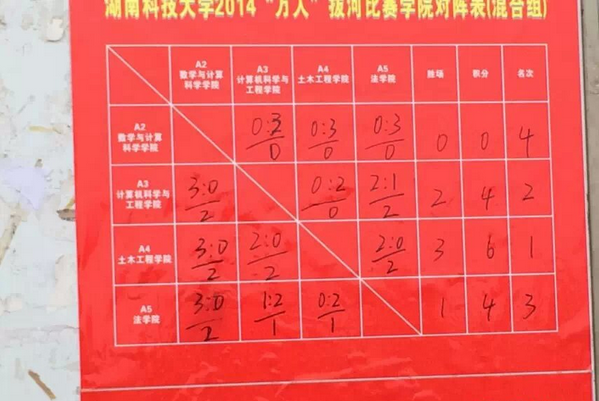 湖南科技大学2014“万人”拔河比赛学院对阵表(混合组)
A2 数学与计算科学学院 A3 计算机科学与工程学院 A4 土木工程学院 A5 法学院 胜场 积分 名次
A2 数学与计算科学学院 0:3/0 0:3/0 0:3/0 0 0 4
A3 计算机科学与工程学院 3:0/2 0:2/0 2:1/2 2 4 2
A4 土木工程学院 3:0/2 2:0/2 2:0/2 3 6 1
A5 法学院 3:0/2 1:2/1 0:2/1 1 4 3